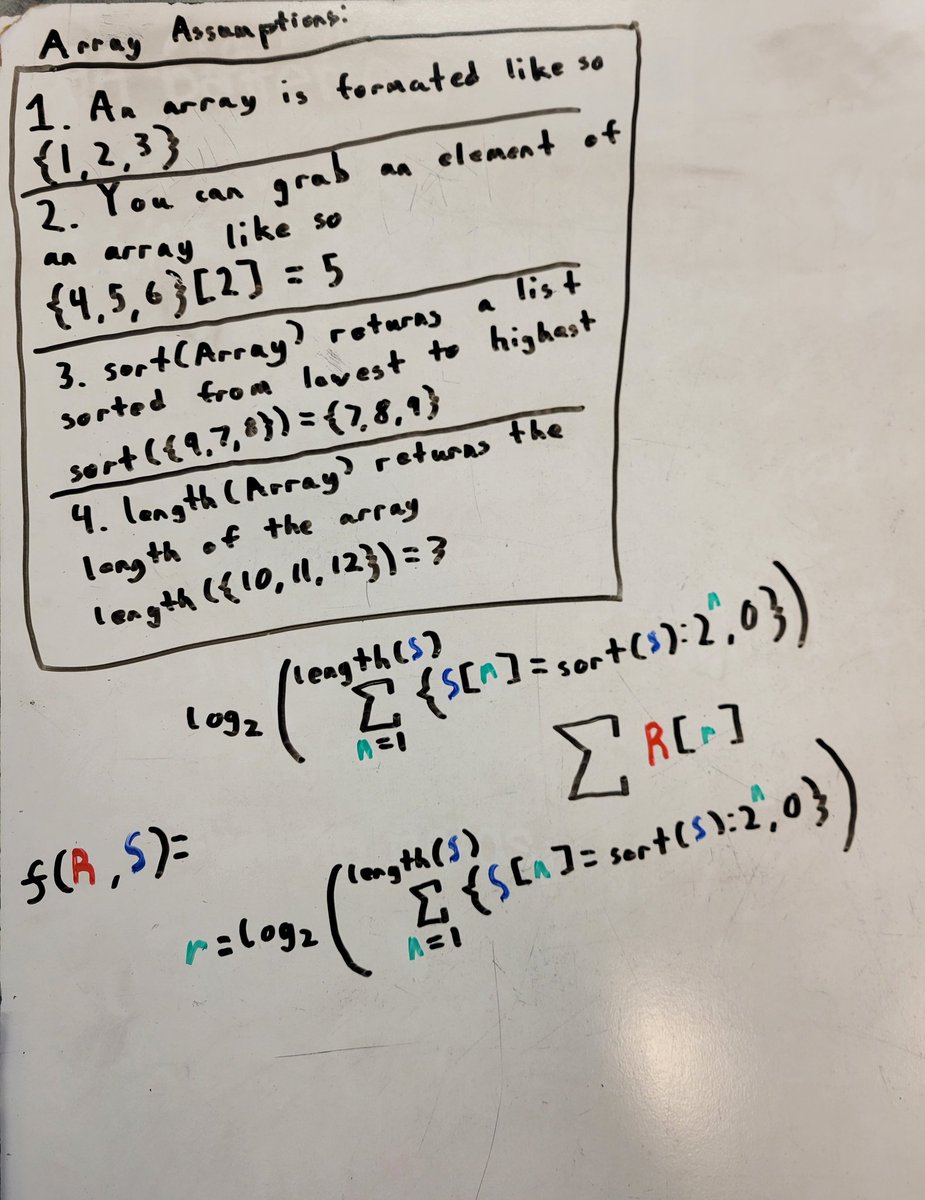 Array Assumptions:
1. An array is formated like so
{1,2,3}
2. You can grab an element of
an array like so
{4,5,6}[2] = 5
3. sort(Array) returns a list
sorted from lowest to highest
sort({9,7,8})={7,8,9}
4. length(Array) returns the
length of the array
length({10,11,12})=3
log₂(∑ length(S) n=1 {S[n]=sort(S):2ⁿ,0})
∑ R[r]
f(R,S)=
r=log₂(∑ length(S) n=1 {S[n]=sort(S):2ⁿ,0})